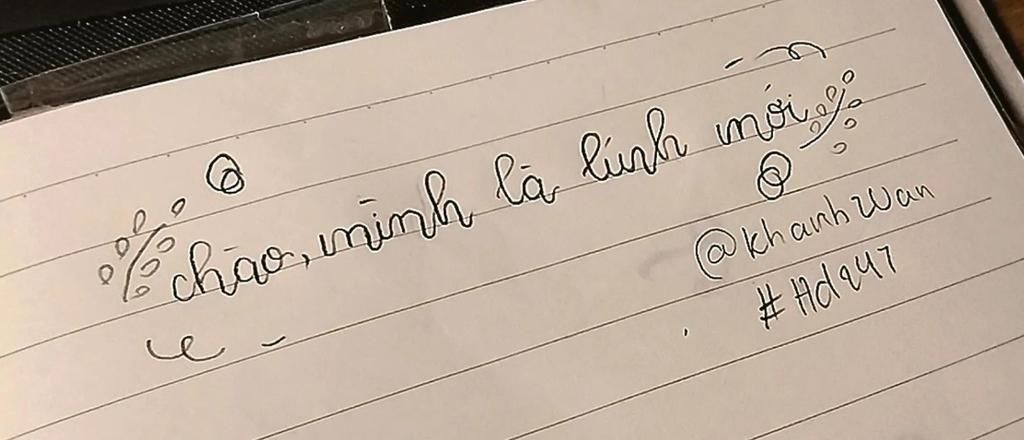 chào, mình là lính mới
@khanhwan
#Hd247